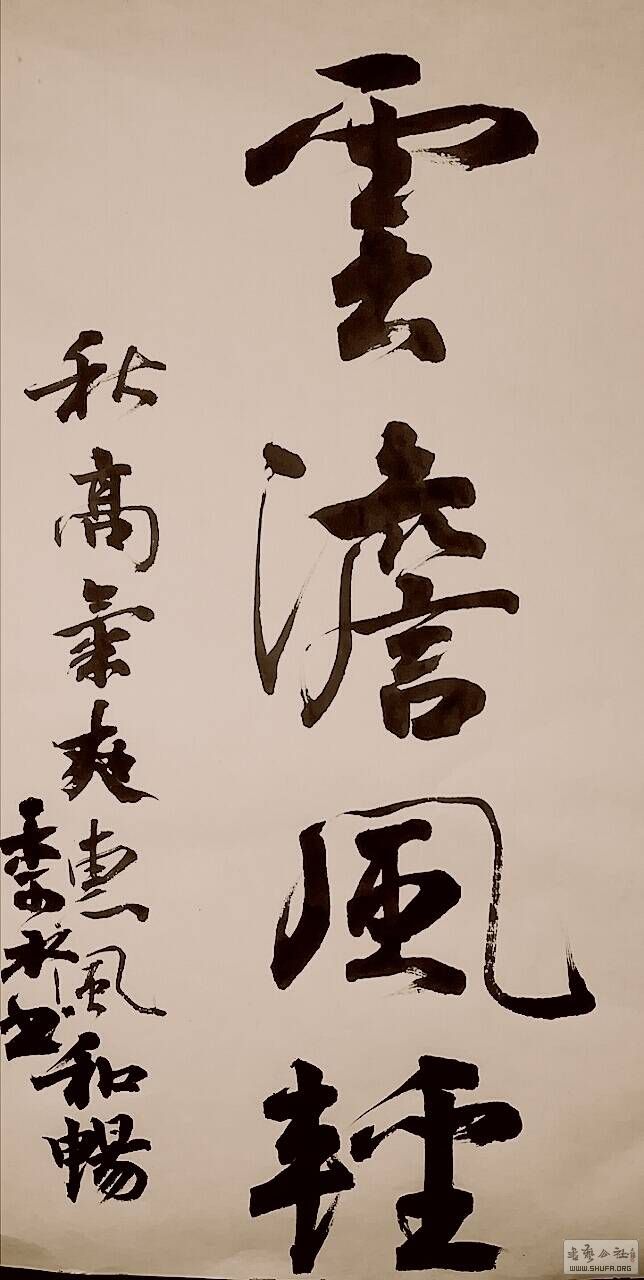 雲澹風輕
秋高氣爽惠風和暢
永書
書藝公社
WWW.SHUFA.ORG